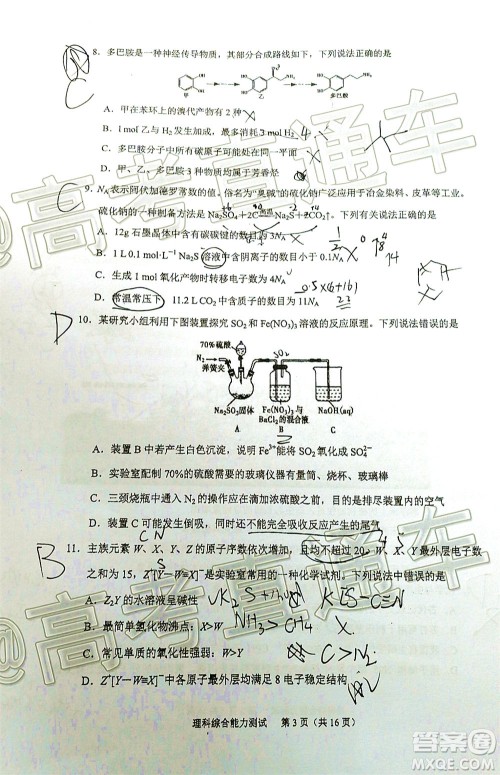 8．多巴胺是一种神经传导物质，其部分合成路线如下，下列说法正确的是
C
甲 乙 多巴胺
A．甲在苯环上的溴代产物有 2 种
B．1 mol 乙与 H₂ 发生加成，最多消耗 3 mol H₂ 4 X
C．多巴胺分子中所有碳原子可能处在同一平面
D．甲、乙、多巴胺 3 种物质均属于芳香烃 X
C 9．Nₐ 表示阿伏加德罗常数的值。俗名为“臭碱”的硫化钠广泛应用于冶金染料、皮革等工业。
硫化钠的一种制备方法是 Na₂SO₄＋2C Na₂S＋2CO₂↑。下列有关说法正确的是
A．12g 石墨晶体中含有碳碳键的数目为 3Nₐ
B．1 L 0.1 mol·L⁻¹ Na₂S 溶液中含阴离子的数目小于 0.1Nₐ
C．生成 1 mol 氧化产物时转移电子数为 4Nₐ
D．常温常压下，11.2 L CO₂ 中含质子的数目为 11Nₐ 22
D 10．某研究小组利用下图装置探究 SO₂ 和 Fe(NO₃)₃ 溶液的反应原理。下列说法错误的是
70%硫酸 SO₂
N₂
弹簧夹
Na₂SO₃固体 Fe(NO₃)₃与BaCl₂的混合液 NaOH(aq)
A B C
A．装置 B 中若产生白色沉淀，说明 Fe³⁺能将 SO₂ 氧化成 SO₄²⁻
B．实验室配制 70%的硫酸需要的玻璃仪器有量筒、烧杯、玻璃棒
C．三颈烧瓶中通入 N₂ 的操作应在滴加浓硫酸之前，目的是排尽装置内的空气
D．装置 C 可能发生倒吸，同时还不能完全吸收反应产生的尾气
C N
B 11．主族元素 W、X、Y、Z 的原子序数依次增大，且均不超过 20。W、X、Y 最外层电子数
之和为 15，Z⁺[Y—W≡X]⁻是实验室常用的一种化学试剂。下列说法中错误的是
A．Z₂Y 的水溶液呈碱性 K₂S KS-C≡N
B．最简单氢化物沸点：W>X NH₃>CH₄ X
C．常见单质的氧化性强弱：W>Y C>N₂
D．Z⁺[Y—W≡X]⁻中各原子最外层均满足 8 电子稳定结构
理科综合能力测试 第 3 页（共 16 页）
@高考直通车
答案圈
MXQE.COM